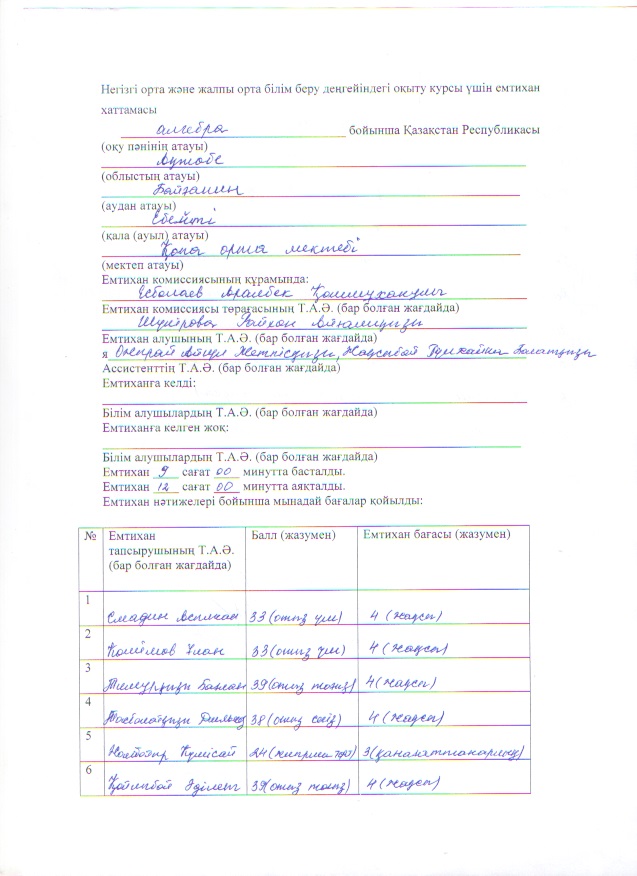 Негізгі орта және жалпы орта білім беру деңгейіндегі оқыту курсы үшін емтихан
хаттамасы
алгебра бойынша Қазақстан Республикасы
(оқу пәнінің атауы)
Ақтөбе
(облыстың атауы)
Байғанин
(аудан атауы)
Ебейті
(қала (ауыл) атауы)
Қопа орта мектебі
(мектеп атауы)
Емтихан комиссиясының құрамында:
Есболаев Аралбек
Емтихан комиссиясы төрағасының Т.А.Ә. (бар болған жағдайда)
Шүкірова Райхан
Емтихан алушының Т.А.Ә. (бар болған жағдайда)
я
Ассистенттің Т.А.Ә. (бар болған жағдайда)
Емтиханға келді:
Білім алушылардың Т.А.Ә. (бар болған жағдайда)
Емтиханға келген жоқ:
Білім алушылардың Т.А.Ә. (бар болған жағдайда)
Емтихан 9 сағат 00 минутта басталды.
Емтихан 12 сағат 00 минутта аяқталды.
Емтихан нәтижелері бойынша мынадай бағалар қойылды:
№ Емтихан тапсырушының Т.А.Ә. (бар болған жағдайда) Балл (жазумен) Емтихан бағасы (жазумен)
1 Смадин Аслихан 33 (отыз үш) 4 (жақсы)
2 Ұлан 33 (отыз үш) 4 (жақсы)
3 39 (отыз тоғыз) 4 (жақсы)
4 38 (отыз сегіз) 4 (жақсы)
5 Күмісай 24 (жиырма төрт) 3 (қанағаттанарлық)
6 Әділет 39 (отыз тоғыз) 4 (жақсы)